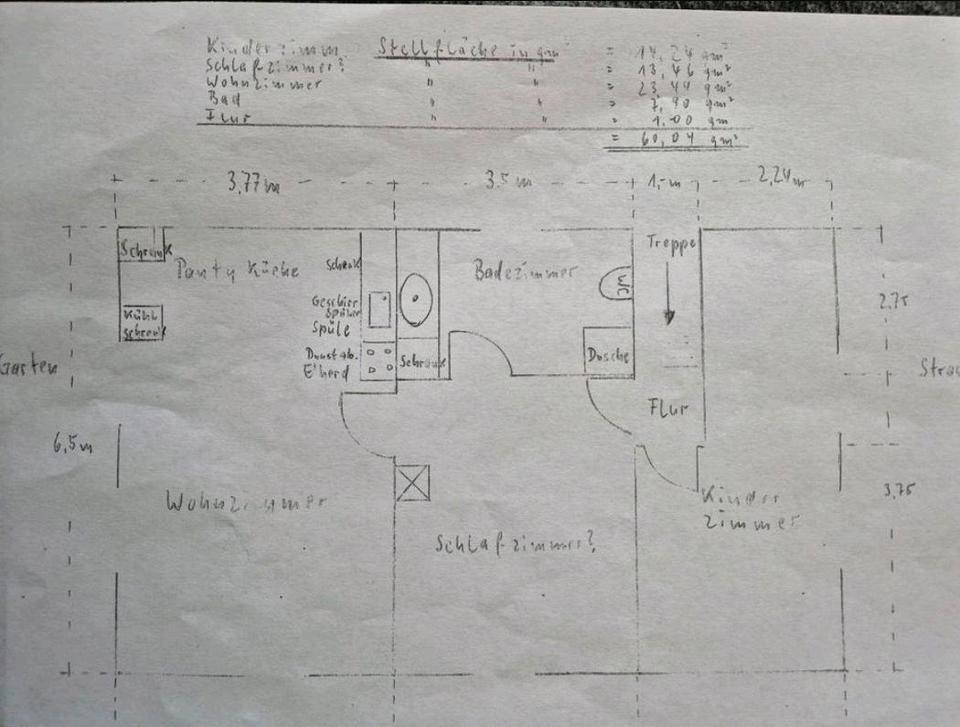 Kinderzimm Stellfläche in qm = 14,24 qm²
Schlafzimmer? " " = 13,46 qm²
Wohnzimmer " " = 23,44 qm²
Bad " " = 7,90 qm²
Flur " " = 1,00 qm
= 60,04 qm²
3,77m 3.5 m 1,-m 2,24m
Schrank
Panty Küche
Schrank
Badezimmer
WC
Treppe
2,75
Kühl
schrank
Geschirr
Spüler
Spüle
Dunstab.
E'herd
Schrank
Dusche
Garten
Flur
6,5m
Wohnzimmer
Kinder
zimmer
3,75
Schlafzimmer?